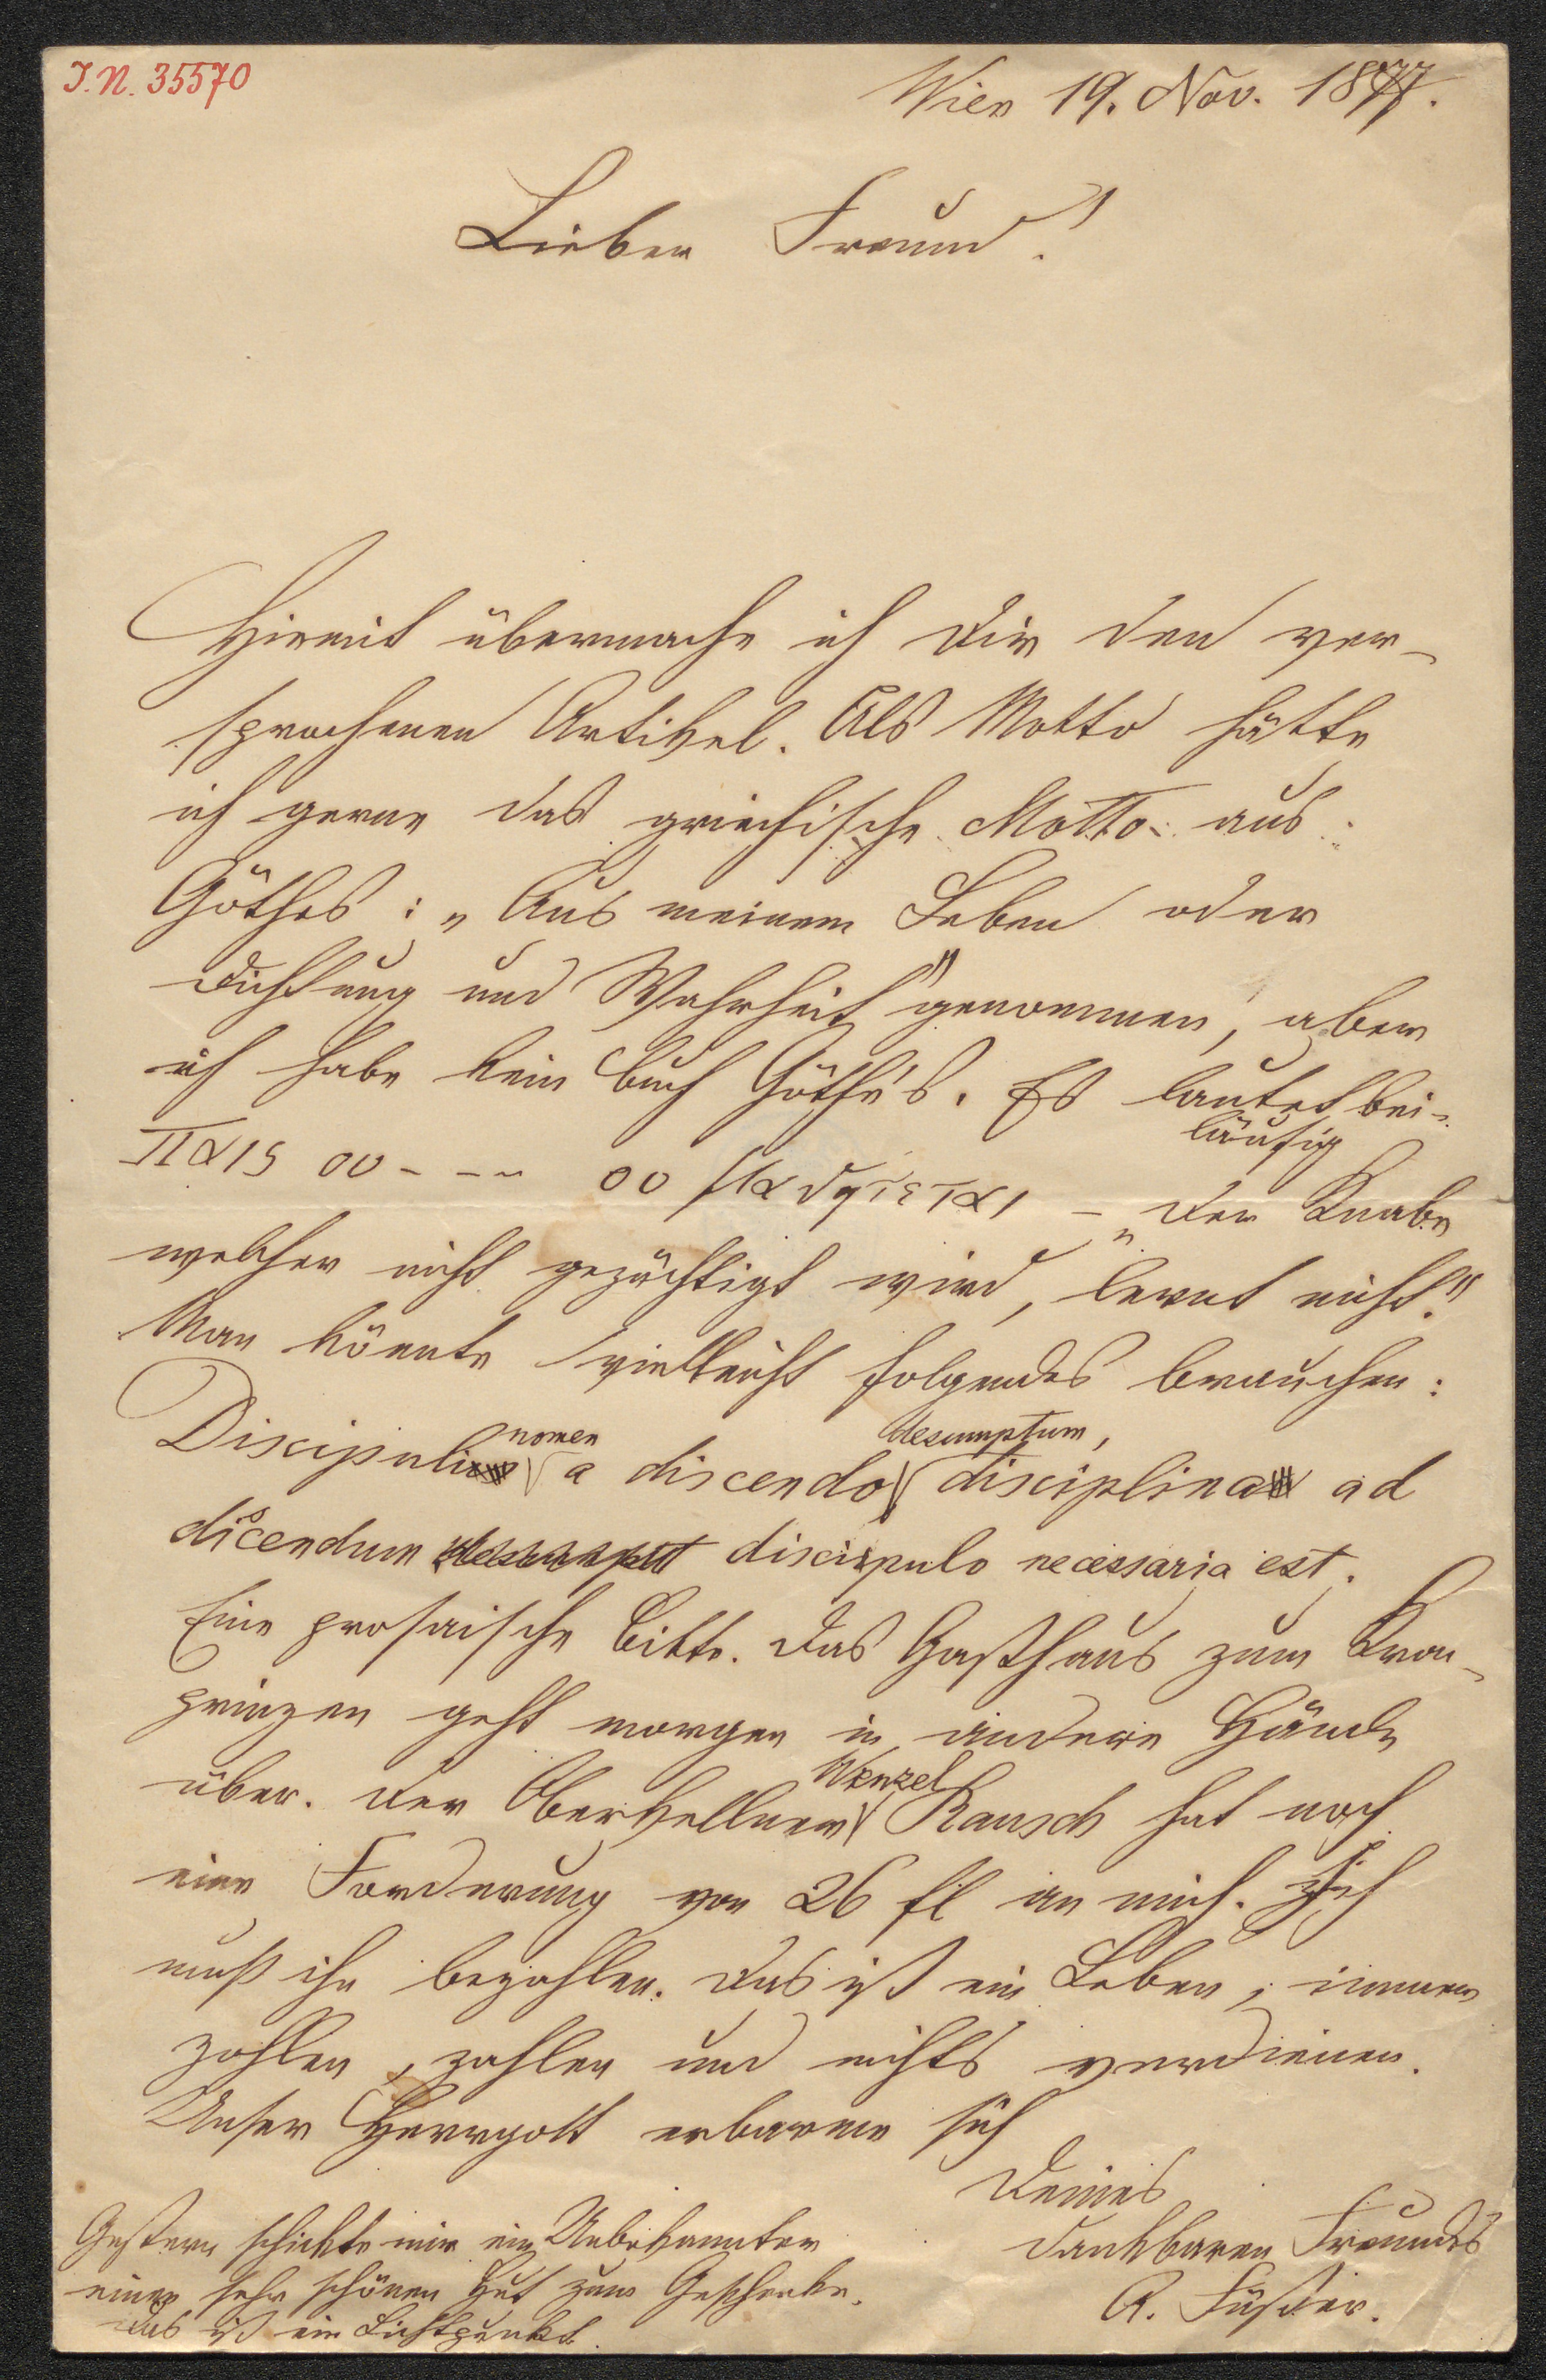 J. N. 35570
Wien 19. Nov. 1877.
Lieber Freund!
Hiermit übermache ich Dir den ver-
sprochenen Artikel. Als Motto hätte
ich gerne das griechische Motto aus
Göthes: „Aus meinem Leben oder
Dichtung und Wahrheit" genommen, aber
ich habe kein Buch Göthe's. Es lautet bei-
läufig
παις ου - - - ου
– „Der Knabe
welcher nicht gezüchtigt wird, lernt nicht."
Man könnte vielleicht folgendes brauchen:
Discipuli nomen a discendo desumptum, disciplina ad
discendum discipulo necessaria est.
Eine prosaische Bitte. Das Gasthaus zum Kron-
prinzen geht morgen in andere Hände
über. Der Oberkellner Wenzel Rausch hat noch
eine Forderung von 26 fl an mich. Ich
muß ihn bezahlen. Das ist ein Leben, immer
zahlen, zahlen und nichts verdienen.
Unser Herrgott erbarme sich
Deines
dankbaren Freundes
A. Füster.
Gestern schickte mir ein Unbekannter
einen sehr schönen Hut zum Geschenke.
Das ist ein Lichtpunkt.